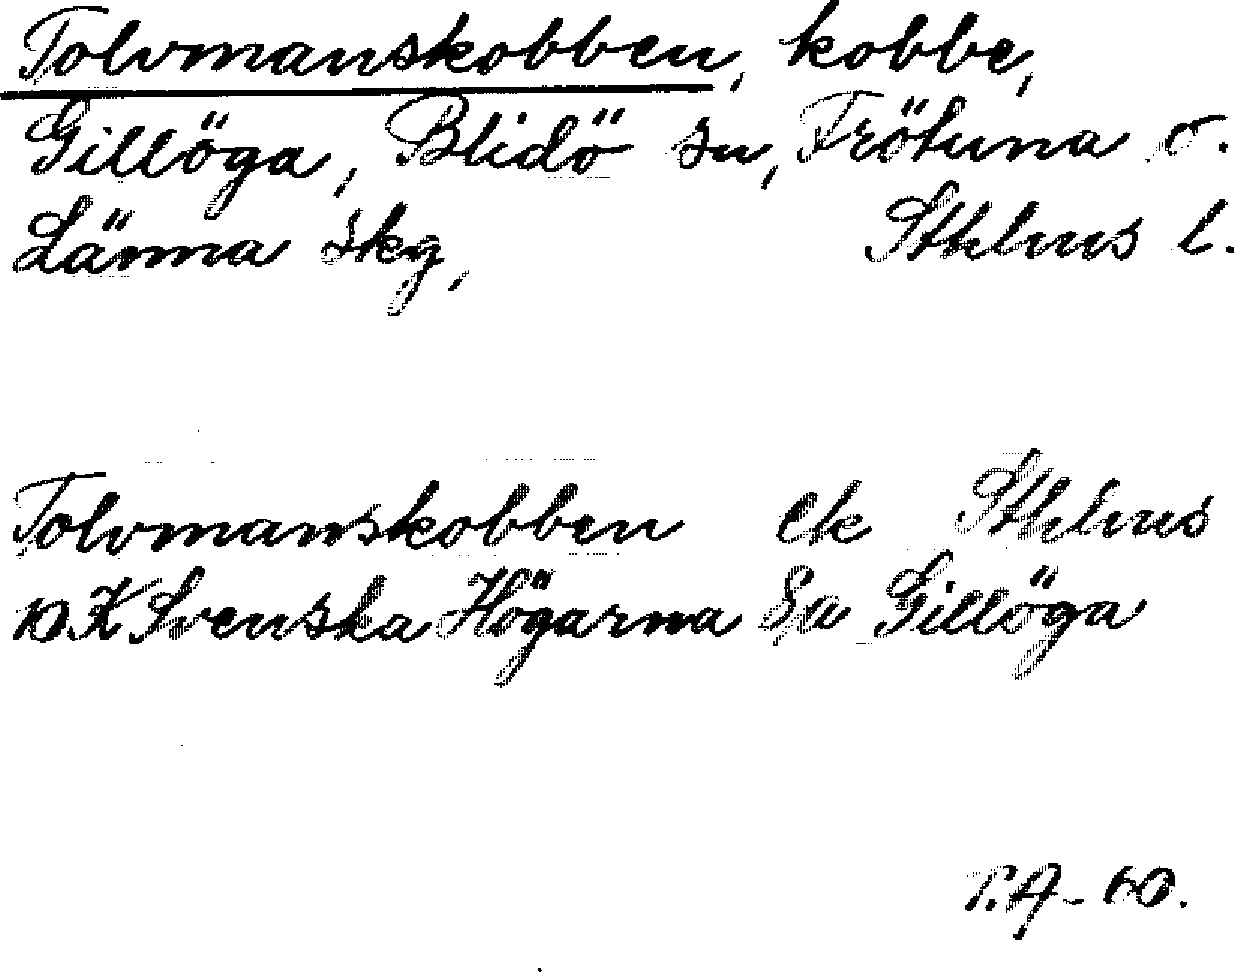 Tolvmanskobben, kobbe,
Gillöga, Blidö sn, Frötuna o.
Länna skg, Sthlms l.
Tolvmanskobben ek Sthlms
10 K Svenska Högarna Sa Gillöga
T.A-60.